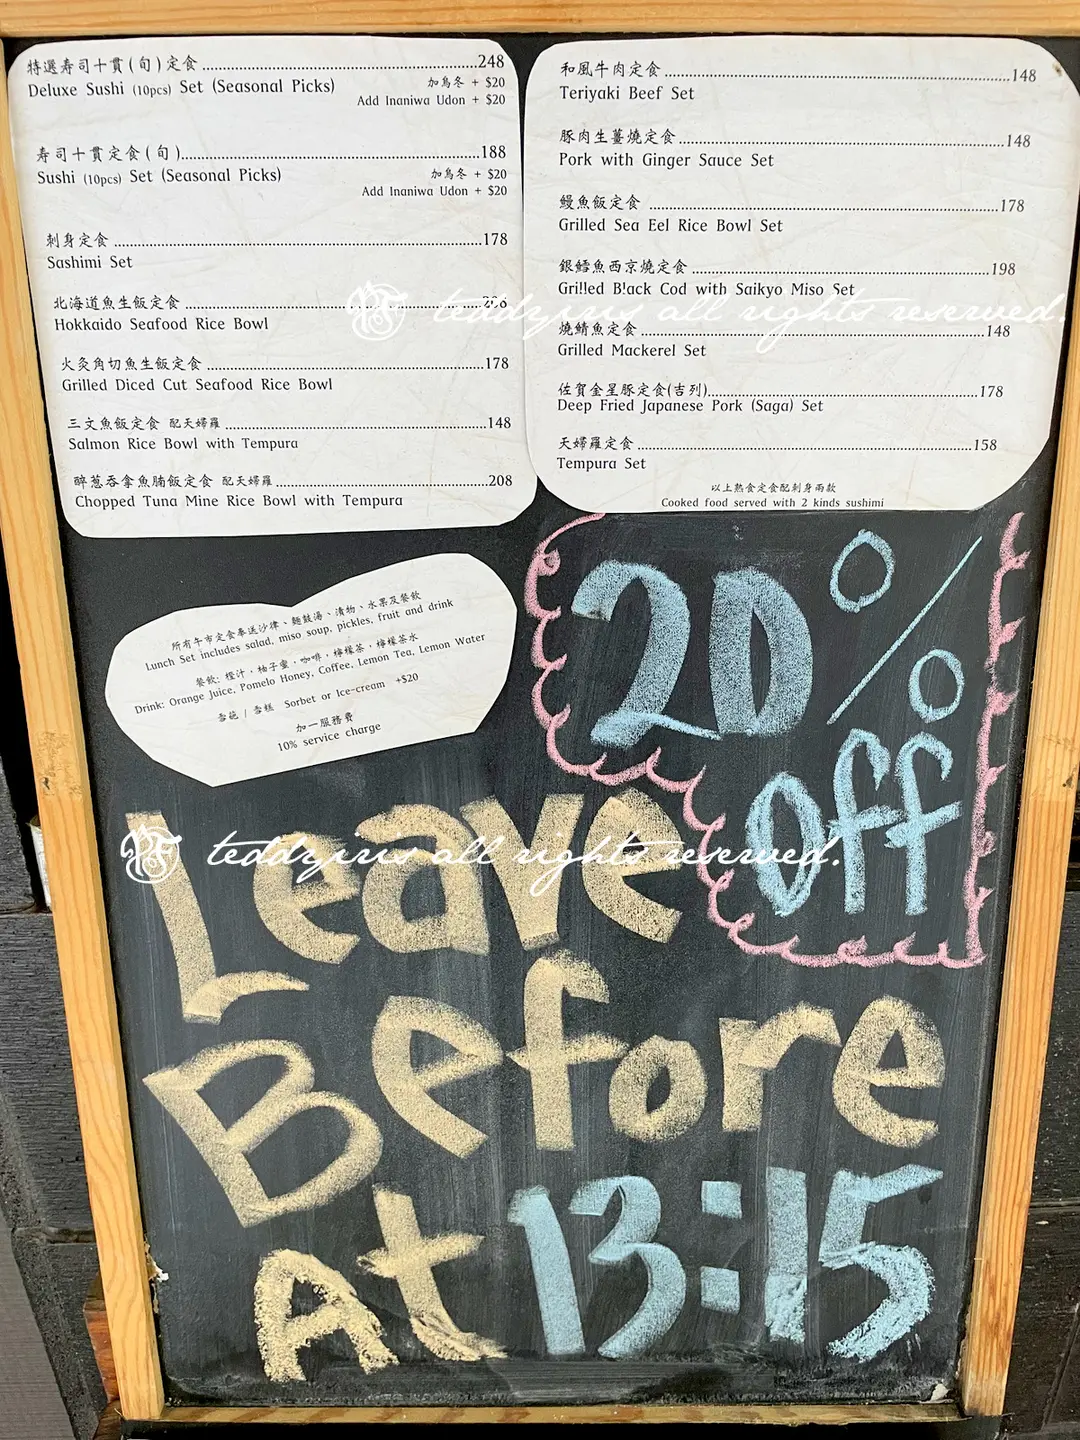 特選寿司十貫(旬)定食........248
Deluxe Sushi (10pcs) Set (Seasonal Picks)
加烏冬 + $20
Add Inaniwa Udon + $20
寿司十貫定食(旬)........188
Sushi (10pcs) Set (Seasonal Picks)
加烏冬 + $20
Add Inaniwa Udon + $20
刺身定食........178
Sashimi Set
北海道魚生飯定食........
Hokkaido Seafood Rice Bowl
火灸角切魚生飯定食........178
Grilled Diced Cut Seafood Rice Bowl
三文魚飯定食 配天婦羅........148
Salmon Rice Bowl with Tempura
醉葱吞拿魚腩飯定食 配天婦羅........208
Chopped Tuna Mine Rice Bowl with Tempura
和風牛肉定食........148
Teriyaki Beef Set
豚肉生薑燒定食........148
Pork with Ginger Sauce Set
鰻魚飯定食........178
Grilled Sea Eel Rice Bowl Set
銀鱈魚西京燒定食........198
Grilled Black Cod with Saikyo Miso Set
燒鯖魚定食........148
Grilled Mackerel Set
佐賀金星豚定食(吉列)........178
Deep Fried Japanese Pork (Saga) Set
天婦羅定食........158
Tempura Set
以上熟食定食配刺身兩款
Cooked food served with 2 kinds sushimi
teddyiris all rights reserved.
所有午市定食奉送沙律、麵豉湯、漬物、水果及餐飲
Lunch Set includes salad, miso soup, pickles, fruit and drink
餐飲: 橙汁，柚子蜜，咖啡，檸檬茶，檸檬水
Drink: Orange Juice, Pomelo Honey, Coffee, Lemon Tea, Lemon Water
雪葩 / 雪糕 Sorbet or Ice-cream +$20
加一服務費
10% service charge
20%
off
Leave
Before
At 13:15
teddyiris all rights reserved.